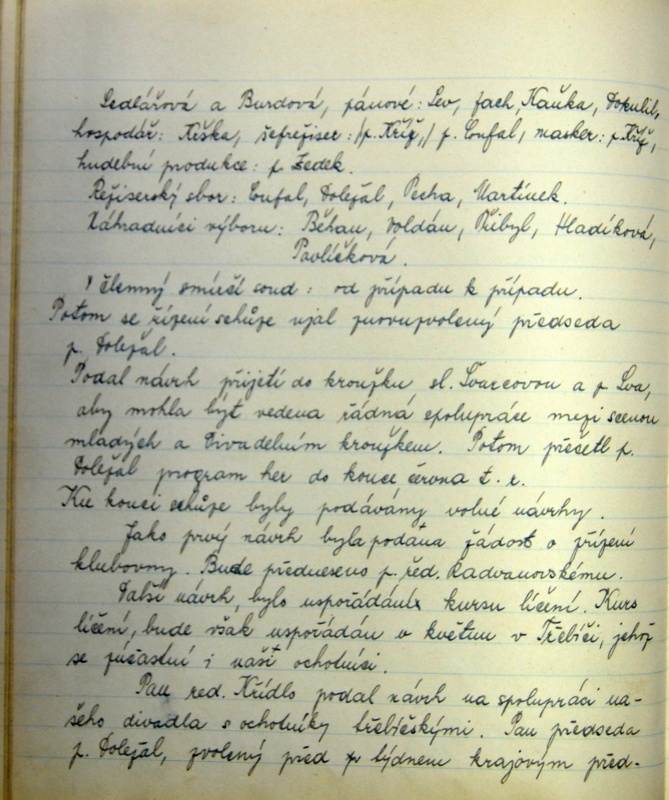 Sedlářová a Burdová, pánové: Lev, Jach, Kaňka, Dokulil,
hospodář: Kiška, šefrežiser: /p. Kříž,/ p. Coufal, masker: p. Kříž,
hudební produkce: p. Zedek.
Režiserský sbor: Coufal, Doležal, Pecha, Martínek.
Náhradníci výboru: Běhan, Voldán, Přibyl, Hladíková,
Pavlíčková.
členný smírčí soud: od případu k případu.
Potom se řízení schůze ujal znovuzvolený předseda
p. Doležal.
Podal návrh přijetí do kroužku sl. Švarcovou a p. Lva,
aby mohla být vedena řádná spolupráce mezi scenou
mladých a Divadelním kroužkem. Potom přečetl p.
Doležal program her do konce června t. r.
Ku konci schůze byly podávány volné návrhy.
Jako prvý návrh byla podána žádost o zřízení
klubovny. Bude předneseno p. řed. Radvanovskému.
Další návrh, bylo uspořádání kursu líčení. Kurs
líčení, bude však uspořádán v květnu v Třebíči, jehož
se zúčastní i naší ochotníci.
Pan red. Křídlo podal návrh na spolupráci na-
šeho divadla s ochotníky třebíčskými. Pan předseda
p. Doležal, zvolený před týdnem krajovým před-